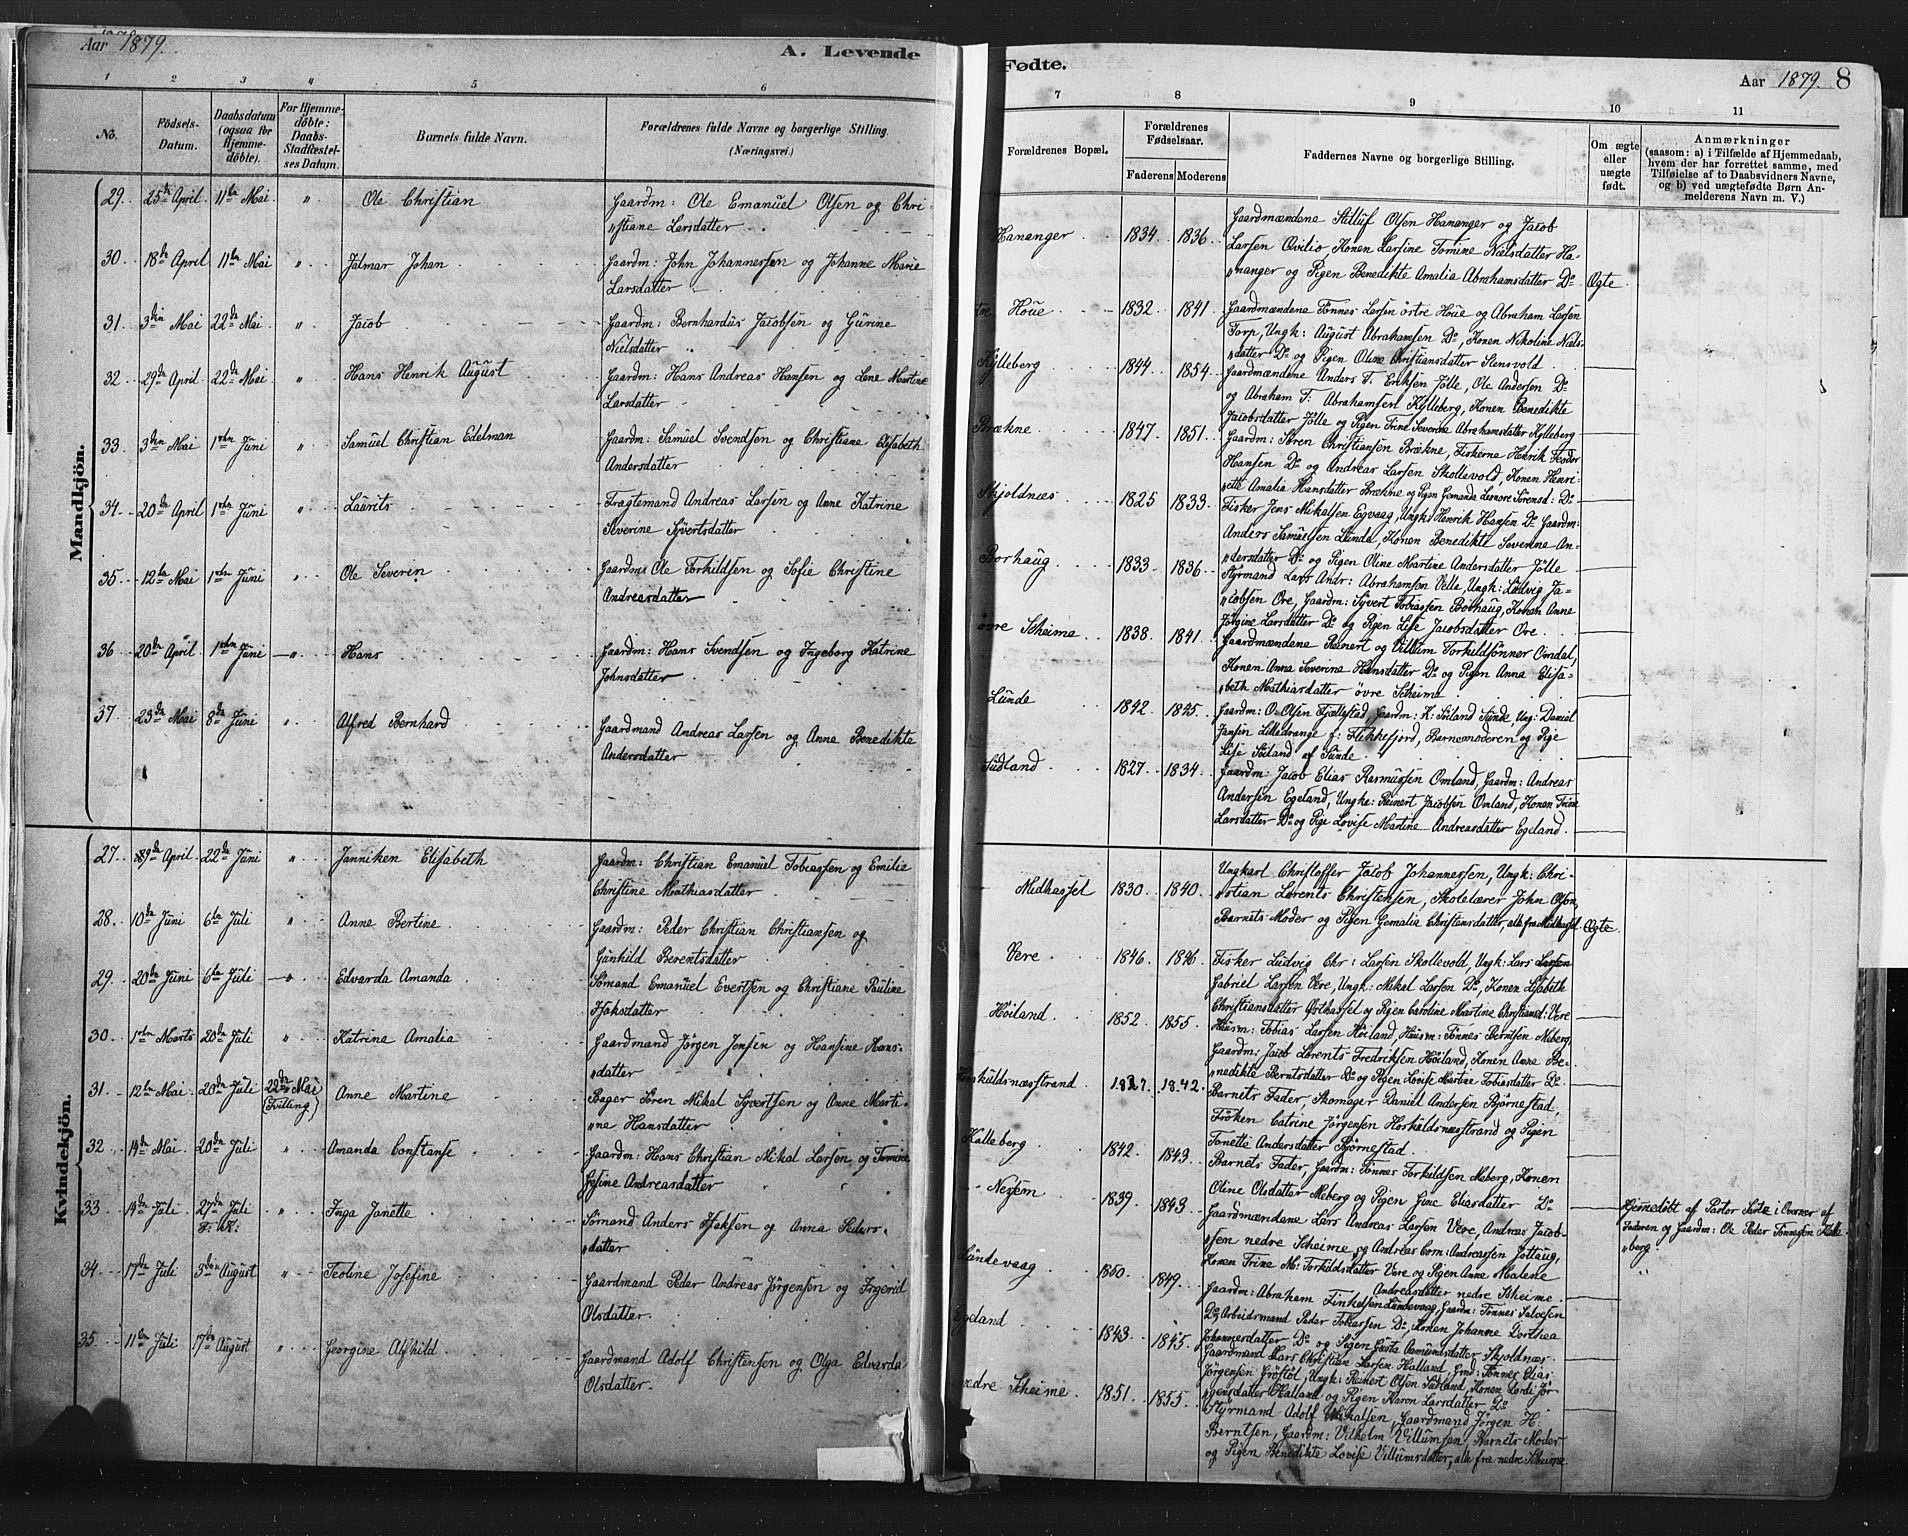 Aar 1879.
A. Levende
1 2 3 4 5 6
No.
Fødsels-Datum.
Daabsdatum (ogsaa for Hjemmedöbte).
For Hjemmedöbte: Daabs-Stadfæstelses Datum.
Barnets fulde Navn.
Forældrenes fulde Navne og borgerlige Stilling. (Næringsvei.)
Mandkjön.
29. 25de April 11te Mai " Ole Christian Gaardm: Ole Emanuel Olsen og Chri-
"stiane Larsdatter
30 18de April 11te Mai " Jalmar Johan Gaardm: John Johannessen og Johanne Marie
Larsdatter
31. 3die Mai 22de Mai " Jacob Gaardm: Bernhardus Jacobsen og Gurine
Nielsdatter
32 29de April 22de Mai " Hans Henrik August Gaardm: Hans Andreas Hansen og Lene Martine
Larsdatter
33. 3die Mai 1ste Juni " Samuel Christian Edelman Gaardm. Samuel Svendsen og Christiane Elisabeth
Andersdatter
34 20de April 1ste Juni " Laurits Fragtemand Andreas Larsen og Anne Katrine
Severine Syvertsdatter
35 12te Mai 1ste Juni " Ole Severin Gaardm: Ole Torkildsen og Sofie Christine
Andreasdatter
36 20de April 1ste Juni " Hans Gaardm: Hans Svendsen og Ingeborg Katrine
Johnsdatter
37 23de Mai 8de Juni " Alfred Bernhard Gaardmand Andreas Larsen og Anne Benedikte
Andersdatter
Kvindekjön.
27. 29de April 22de Juni " Janniken Elisabeth Gaardm: Christian Emanuel Tobiassen og Emilie
Christine Mathiasdatter
28. 10de Juni 6te Juli " Anne Bertine Gaardm: Peder Christian Christiansen og
Gunhild Berentsdatter
29. 20de Juni 6te Juli " Edvarda Amanda Sömand Emanuel Evertsen og Christiane Pauline
Isaksdatter
30. 1ste Marts 20de Juli " Katrina Amalia Gaardmand Jörgen Jensen og Hansine Hans-
"datter
31. 12te Mai 20de Juli 22de Mai (Tvilling) Anne Martine Bager Sören Mikal Syvertsen og Anne Marti-
"ne Hansdatter
32 14de Mai 20de Juli " Amanda Constanse Gaardm: Hans Christian Mikal Larsen og Tomine
Gesine Andreasdatter
33. 14de Juli 27de Juli " Inga Janette Sömand Anders Isaksen og Anna Peders-
Fr. K. "datter
34 17de Juli 3die August " Teoline Josefine Gaardmand Peder Andreas Jörgensen og Ingerid
Olsdatter
35 11te Juli 17de August " Georgine Alfhild Gaardmand Adolf Christensen og Olga Edvarda
Olsdatter
Fødte.
Aar 1879. 8
7 8 9 10 11
Forældrenes Bopæl.
Forældrenes Fødselsaar.
Faderens Moderens
Faddernes Navne og borgerlige Stilling.
Om ægte eller uægte født.
Anmærkninger
(saasom: a) i Tilfælde af Hjemmedaab,
hvem der har forrettet samme, med
Tilføielse af to Daabsvidners Navne,
og b) ved uægtefødte Børn An-
melderens Navn m. V.)
Gaardmændene Stilluf Olsen Hananger og Jacob
Hananger 1834 1836 Larsen Qviliö, Konen Larsine Tomine Nielsdatter Ha-
"nanger og Pigen Benedikte Amalia Abrahamsdatter Do Ægte
Houe 1832 1841 Gaardmændene Tönnes Larsen östre Houe og Abraham Larsen
Torp, Ungk: August Abrahamsen Do, Konen Nikoline Niels-
"datter Do og Pigen Oline Christiansdatter Stensvold
Kylleberg 1844 1854 Gaardmændene Anders T. Eriksen Jölle, Ole Andersen Do
og Abraham T. Abrahamsen Kylleberg, Konen Benedikte
Jacobsdatter Jölle og Pigen Trine Severine Abrahamsdatter Kylleberg
Brækne 1847 1851 Gaardm: Sören Christiansen Brækne, Fiskerne Henrik Teodor
Hansen Do og Andreas Larsen Skollevold, Konen Henri-
"ette Amalia Hansdatter Brækne og Pigen Gemanda Leonore Sörensd: Do
Skjoldnæs 1825 1833 Fisker Jens Mikalsen Egvaag, Ungk: Henrik Hansen Do Gaardm:
Anders Samuelsen Lunde, Konen Benedikte Severine An-
"dersdatter Do og Pigen Oline Martine Andersdatter Jölle
Borhaug 1833 1836 Styrmand Lars Andr: Abrahamsen Velle, Ungk: Ludvig Ja-
"cobsen Ore, Gaardm: Syvert Tobiassen Borhaug, Konen Anne
Jörgine Larsdatter Do og Pigen Lise Jacobsdatter Ore
övre Scheime 1838 1841 Gaardmændene Reinert og Villum Torkildsönner Omdal,
Konen Anna Severine Hansdatter Do og Pigen Anna Elisa-
"beth Mathiasdatter övre Scheime
Lunde 1842 1845 Gaardm: O. Olsen Fjællestad, Gaardm: K: Söiland Sunde, Ung: Daniel
Jansen Lilledrange f: Flekkefjord, Barnemoderen og Pige
Lise Söiland af Sunde
Sudland 1827 1834 Gaardm: Jacob Elias Rasmussen Omland, Gaardm: Andreas
Andersen Egeland, Ungk: Reinert Jacobsen Omland, Konen Trine
Larsdatter Do og Pige Lovise Martine Andreasdatter Egeland
Ungkarl Christoffer Jacob Johannessen, Ungk: Chri-
Midhassel 1830 1840 "stian Lorents Christensen, Skolelærer John Olsen,
Barnets Moder og Pigen Gemalia Christensdatter, alle fra Midhassel Ægte
Vere 1846 1846 Fisker Ludvig Chr: Larsen Skollevold, Ungk: Lars Larsen
Gabriel Larsen Vere, Ungk: Mikal Larsen Do, Konen Lisabeth
Christiansdatter Østhassel og Pigen Caroline Martine Christiansd: Vere
Höiland 1852 1855 Husm: Tobias Larsen Höiland, Husm: Tönnes Berntsen Meberg,
Gaardm: Jacob Lorents Fredriksen Höiland, Konen Anna Be-
"nedikte Berntsdatter Do og Pigen Lovise Martine Tobiasdatter Do
Hoskuldsnæsstrand 1827 1842 Barnets Fader, Skomager Daniel Andersen Björnestad,
Fröken Catrine Jörgensen Hoskuldsnæsstrand og Pigen
Tonette Andersdatter Björnestad
Kalleberg 1842 1843 Barnets Fader, Gaardm: Tönnes Torkildsen Meberg, Konen
Oline Olsdatter Meberg og Pigen Gine Eliasdatter Do
Nesem 1839 1843 Gaardmændene Lars Andreas Larsen Vere, Andreas Jacob-
"sen nedre Scheime og Andreas Corn: Andreassen Jottaug,
Konen Trine M: Torkildsdatter Vere og Pigen Anne Malene
Andreasdatter nedre Scheime
Hjemmedöbt af Pastor
Faderen og Gaardm: Ole Peder Tönnessen Kalle-
"berg
Lundevaag 1849 Gaardm: Abraham Finkelsen Lundevaag, Gaardm: Tönnes Salvesen
Do, Arbeidsmand Peder Tobiassen Do, Konen Johanne Dorthea
Johannesdatter Do og Pigen Gusta Aamundsdatter Skjoldnæs
Egeland 1843 1845 Gaardmand Lars Christian Larsen Halland, Grmd: Tönnes Elias
Jörgensen Gröstöl, Ungk: Reinert Olsen Sudland, Konen Lorde Jör-
"gensdatter Halland og Pigen Karen Larsdatter Do
nedre Scheime 1851 1855 Styrmand Adolf Mikalsen, Gaardmand Jörgen H:
Berntsen, Gaardm: Vilhelm Villumsen, Barnets Moder
og Pigen Benedikte Lovise Villumsdatter, alle fra nedre Scheime